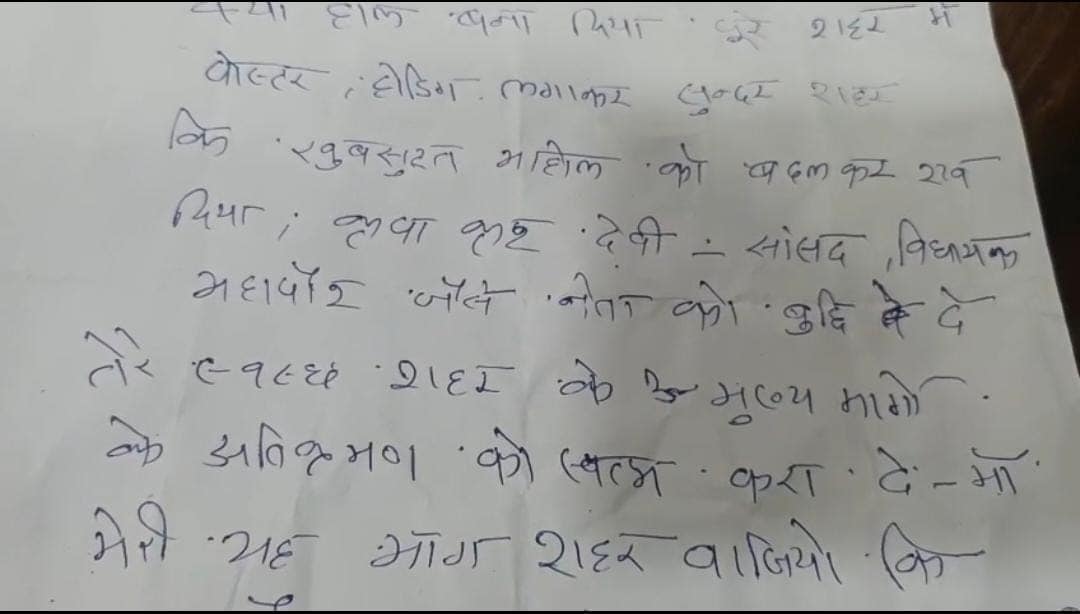 क्या हाल बना दिया पूरे शहर में
पोस्टर, होडिग लगाकर सुन्दर शहर
कि खुबसुरत माहोल को बदल कर रख
दिया; कृपा कर देवी - सांसद, विधायक
महापौर जैसे नेता को बुद्धि दे
तेरे स्वच्छ शहर के मुख्य मार्गो
के अतिक्रमण को खत्म करा दे - माँ
मेरी यह मांग शहर वाशियो कि